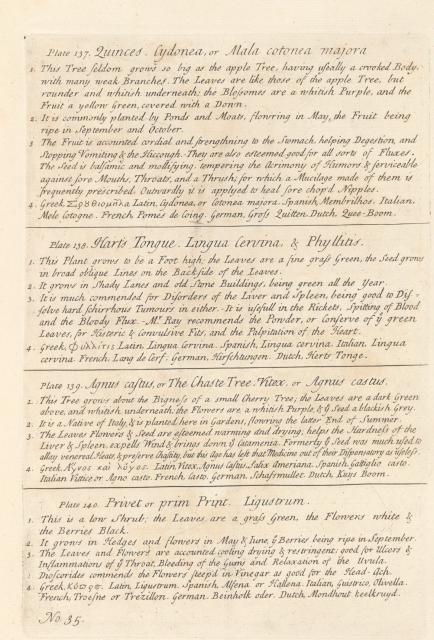 Plate 137. Quinces. Cydonea, or Mala cotonea majora
1. This Tree seldom grows so big as the apple Tree, having usually a crooked Body,
with many weak Branches. The Leaves are like those of the apple Tree, but
rounder and whitish underneath; the Blossomes are a whitish Purple, and the
Fruit a yellow Green, covered with a Down.
2. It is commonly planted by Ponds and Moats, flowring in May, the Fruit being
ripe in September and October.
3 The Fruit is accounted cordial and strengthning to the Stomach, helping Degestion, and
Stopping Vomiting & the Hiccough. They are also esteemed good for all sorts of Fluxes.
The Seed is balsamic and mollifying, tempering the acrimony of Humors & serviceable
against sore Mouths, Throats, and a Thrush; for which a Mucilage made of them is
frequently prescribed. Outwardly it is applyed to heal sore chop'd Nipples.
4. Greek, Latin, Cydonea, or Cotonea majora. Spanish, Membrilhos. Italian,
Mele Cotogne. French, Pomés de Coing. German, Quitten. Dutch, Quee-Boom.
Plate 138. Harts Tongue. Lingua Cervina, & Phyllitis.
1. This Plant grows to be a Foot high; the Leaves are a fine grass Green, the Seed grows
in broad oblique Lines on the Backside of the Leaves.
2. It grows in Shady Lanes and old Stone Buildings, being green all the Year.
3. It is much commended for Disorders of the Liver and Spleen, being good to Dis-
solve hard schirrhous Tumours in either. It is usefull in the Rickets, Spitting of Blood
and the Bloody Flux. Mr. Ray recommends the Powder, or Conserve of ye green
Leaves, for Histeric & Convulsive Fits, and the Palpitation of the Heart.
4. Greek, Φυλλίτις Latin, Lingua Cervina. Spanish, Lingua cervina. Italian, Lingua
cervina. French, Lang de Cerf. German, Hirschtungen. Dutch, Herts Tonge.
Plate 139. Agnus castus, or The Chaste Tree. Vitex, or Agnus castus.
1. This Tree grows about the Bigness of a small Cherry Tree; the Leaves are a dark Green
above, and whitish underneath; the Flowers are a whitish Purple, & ye Seed a blackish Grey.
2. It is a Native of Italy, & is planted here in Gardens, flowring the latter End of Summer.
3. The Leaves Flowers & Seed are esteemed warming and drying; helps the Hardness of the
Liver & Spleen, expells Wind, & brings down ye Catamenia. Formerly ye Seed was much used to
allay venereal Heats, & preserve Chastity, but this Age has left that Medicine out of their Dispensatory as useless.
4. Greek, Ἄγνος καὶ λύγος. Latin, Vitex, Agnus Castus, Salix Ameriana. Spanish, Gattiglio casto.
Italian, Vittice or Agno casto. French, German, Schafmullet. Dutch, Kuijs Boom.
Plate 140. Privet or prim Print. Ligustrum.
1. This is a low Shrub; the Leaves are a grass Green, the Flowers white &
the Berries Black.
2. It grows in Hedges and flowers in May & June, ye Berries being ripe in September.
3. The Leaves and Flowers are accounted cooling drying & restringent; good for Ulcers &
Inflammations of ye Throat, Bleeding of the Gums and Relaxation of the Uvula.
Dioscorides commends the Flowers steep'd in Vinegar as good for the Head-Ach.
4. Greek, Latin, Ligustrum. Spanish, Alfena or Italian, Guistrico, Olivella.
French, Troesne or Trezillon. German, Beinholk oder. Dutch, Mondhout keelkruyd.
No. 35.